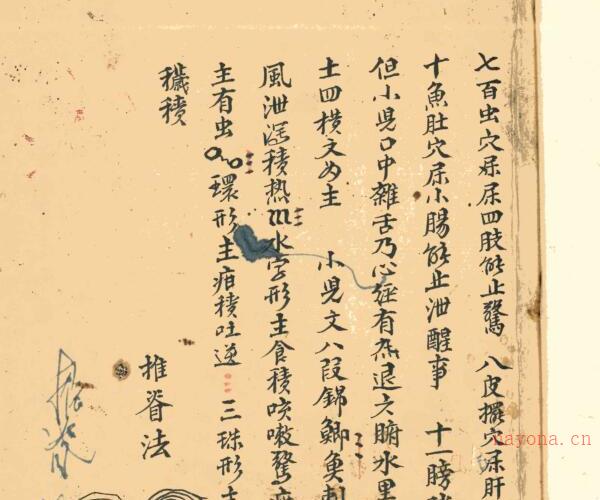 七百虫穴屬尿四肢能止驚 八皮攞穴屬肝
十魚肚穴屬小腸能止泄醒事 十一膀
但小児口中雜舌乃心經有熱退六腑水里
土四橫文为主 小児文八段錦鯽魚刺
風泄溼積热水字形主食積咳嗽驚
主有虫環形主疳積吐逆 三珠形主
穢積
推脊法
推脊
nayona.cn